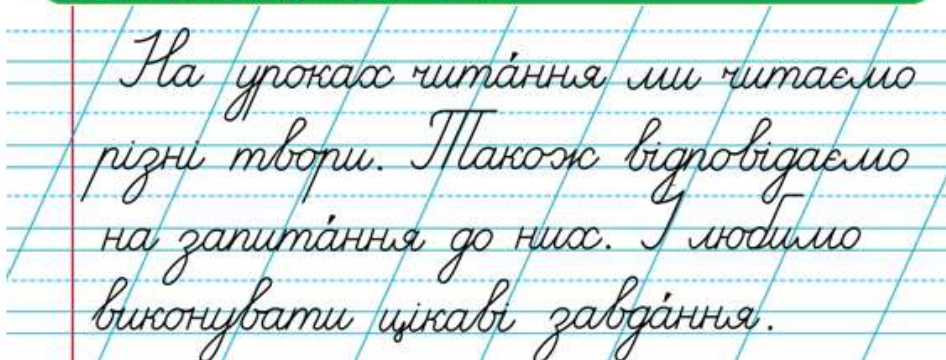 На уроках чита́ння ми читаємо
різні твори. Також відповідаємо
на запита́ння до них. І любимо
виконувати цікаві завда́ння.